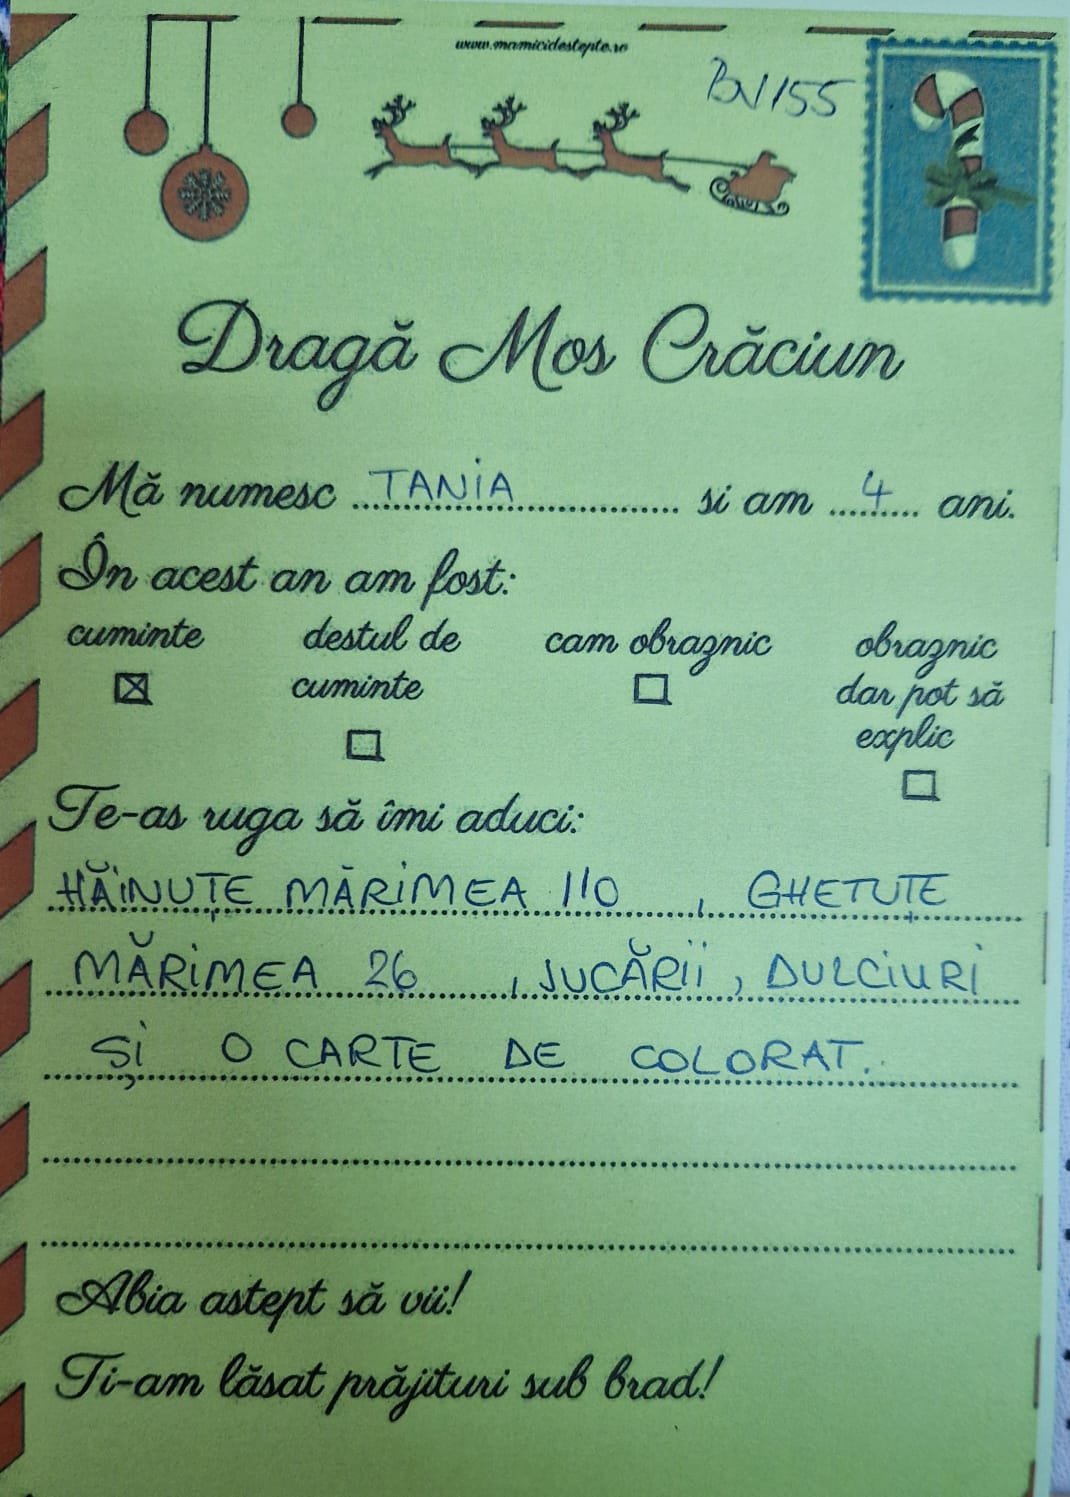 www.mamicidestepte.ro
BV155
Dragă Mos Crăciun
Mă numesc TANiA si am 4 ani.
În acest an am fost:
cuminte destul de cuminte cam obraznic obraznic dar pot să explic
Te-as ruga să îmi aduci:
HĂiNUȚE MĂRiMEA 110, GHETUȚE
MĂRiMEA 26, JUCĂRii, DULCiURi
Și O CARTE DE COLORAT.
Abia astept să vii!
Ti-am lăsat prăjituri sub brad!